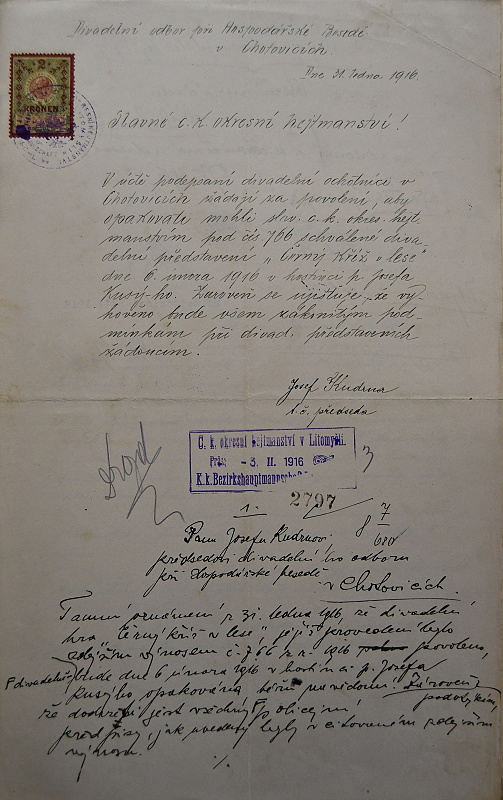 Divadelní odbor při Hospodářské Besedě
v Chotovicích.
Dne 31. ledna 1916.
2
KRONEN
Slavné c. k. okresní hejtmanství!
V úctě podepsaní divadelní ochotníci v
Chotovicích žádají za povolení, aby
opakovati mohli slav. c. k. okres. hejt-
manstvím pod čís. 766 schválené diva-
delní představení „Černý Kříž v lese"
dne 6. února 1916 v hostinci p. Josefa
Kusý-ho. Zároveň se ujišťuje, že vy-
hověno bude všem zákonitým pod-
mínkám při divad. představeních
žádoucím.
Josef Kudrna
t. č. předseda
C. k. okresní hejtmanství v Litomyšli.
Präs. - 3. II. 1916
K.k. Bezirkshauptmannschaft
3
2797
1.
Panu Josefu Kudrnovi
předsedovi divadelního odboru
při Hospodářské besedě
v Chotovicích.
Tamní oznámení z 31. ledna 1916, že divadelní
hra „Černý kříž v lese" jejíž provedení bylo
zdejším výnosem č. 766 z r. 1916 povoleno,
bude dne 6 února 1916 v hostinci p. Josefa
Kusýho opakována béře se na vědomí. Zároveň
že dodržeti jest všechny policejní
předpisy, jak uvedeny byly v citovaném zdejším
výnosu.